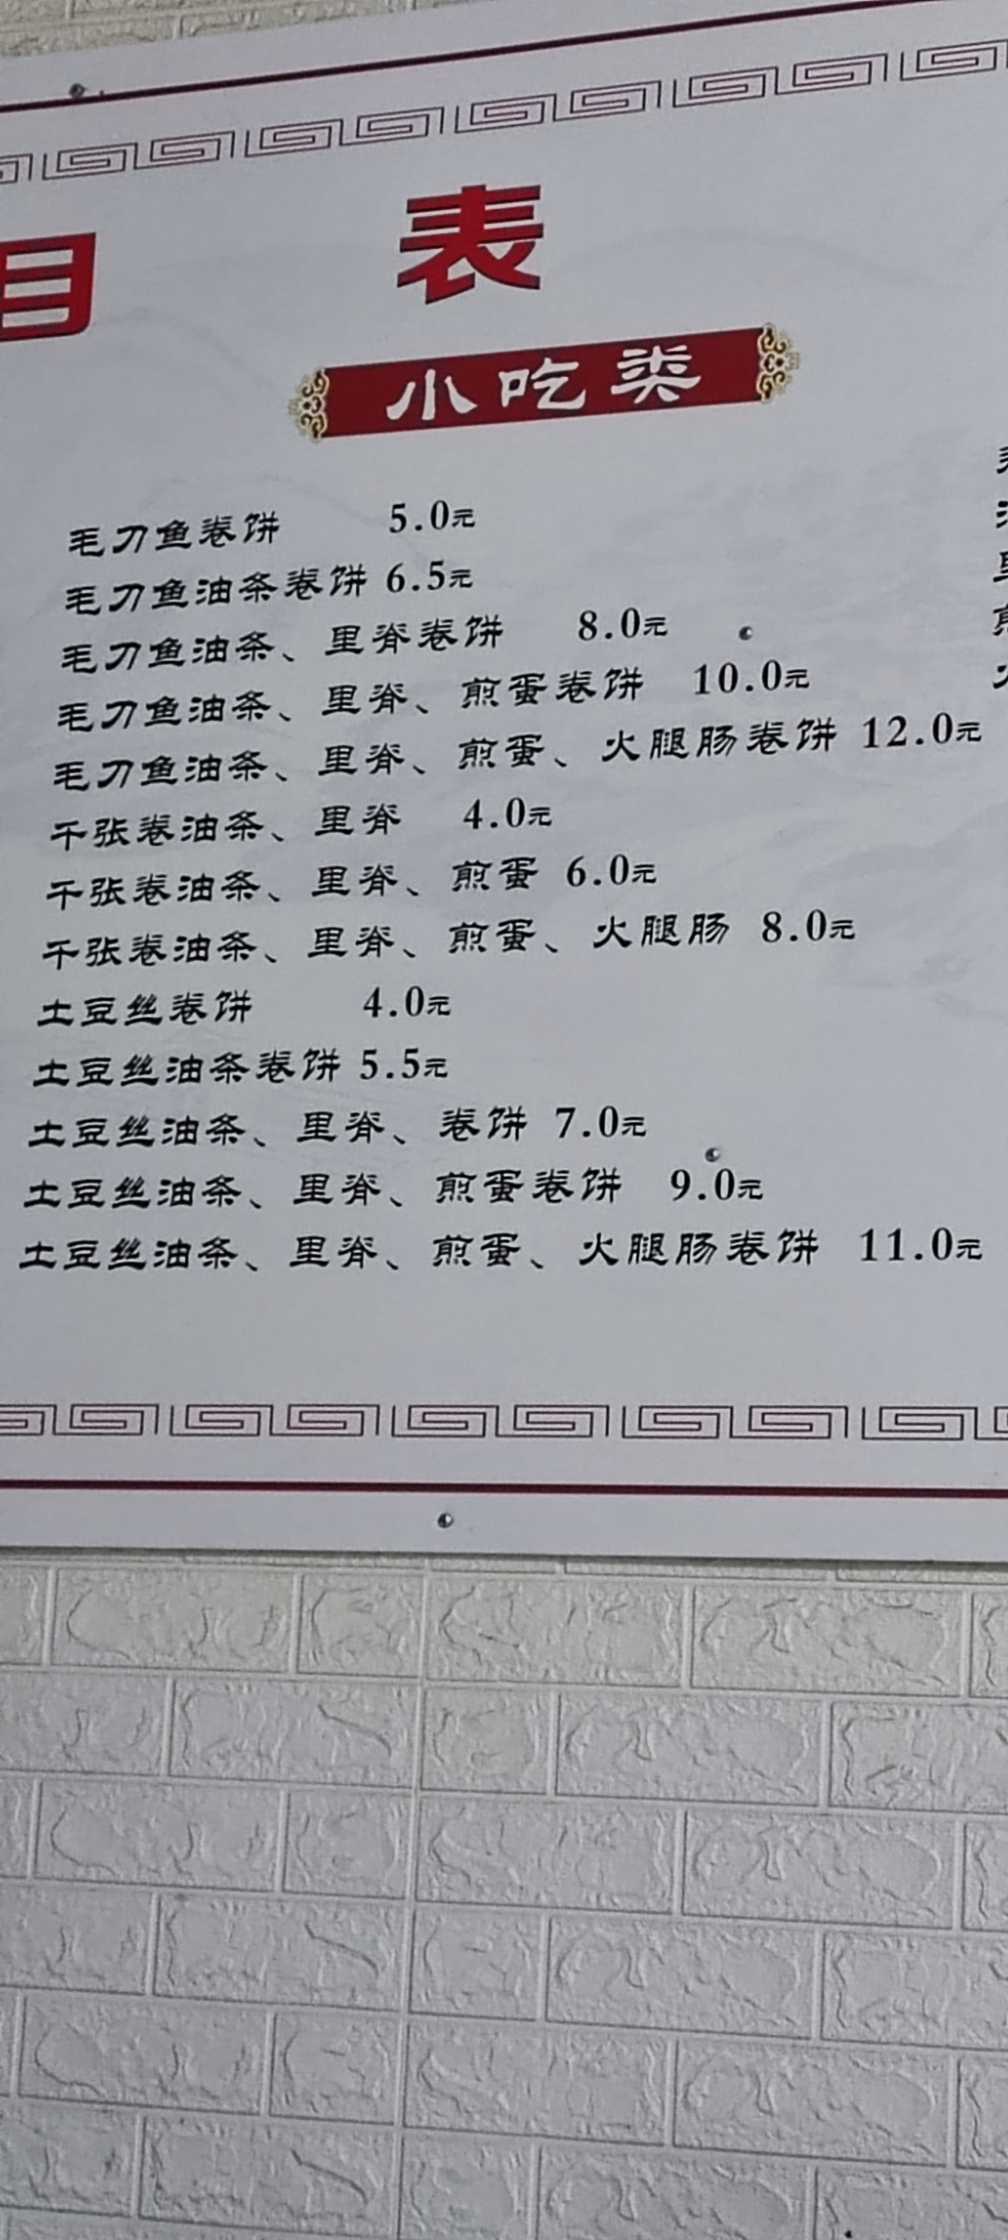 目 表
小吃类
毛刀鱼卷饼 5.0元
毛刀鱼油条卷饼 6.5元
毛刀鱼油条、里脊卷饼 8.0元
毛刀鱼油条、里脊、煎蛋卷饼 10.0元
毛刀鱼油条、里脊、煎蛋、火腿肠卷饼 12.0元
千张卷油条、里脊 4.0元
千张卷油条、里脊、煎蛋 6.0元
千张卷油条、里脊、煎蛋、火腿肠 8.0元
土豆丝卷饼 4.0元
土豆丝油条卷饼 5.5元
土豆丝油条、里脊、卷饼 7.0元
土豆丝油条、里脊、煎蛋卷饼 9.0元
土豆丝油条、里脊、煎蛋、火腿肠卷饼 11.0元